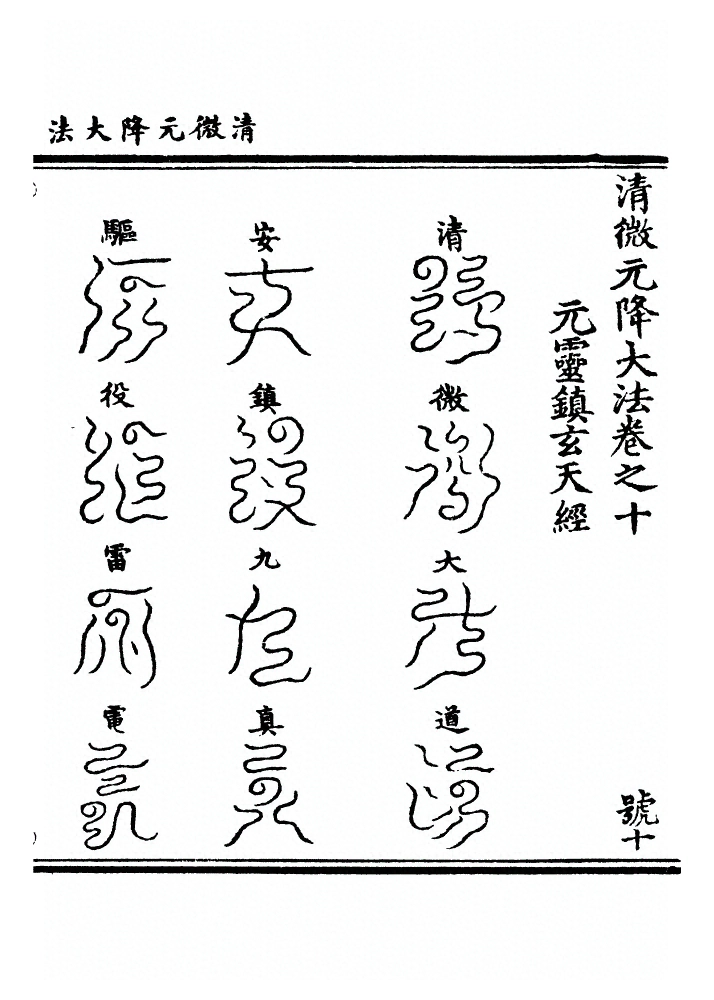 清微元降大法
清微元降大法卷之十 號十
元靈鎮玄天經
清微大道
安鎮九真
驅役雷電